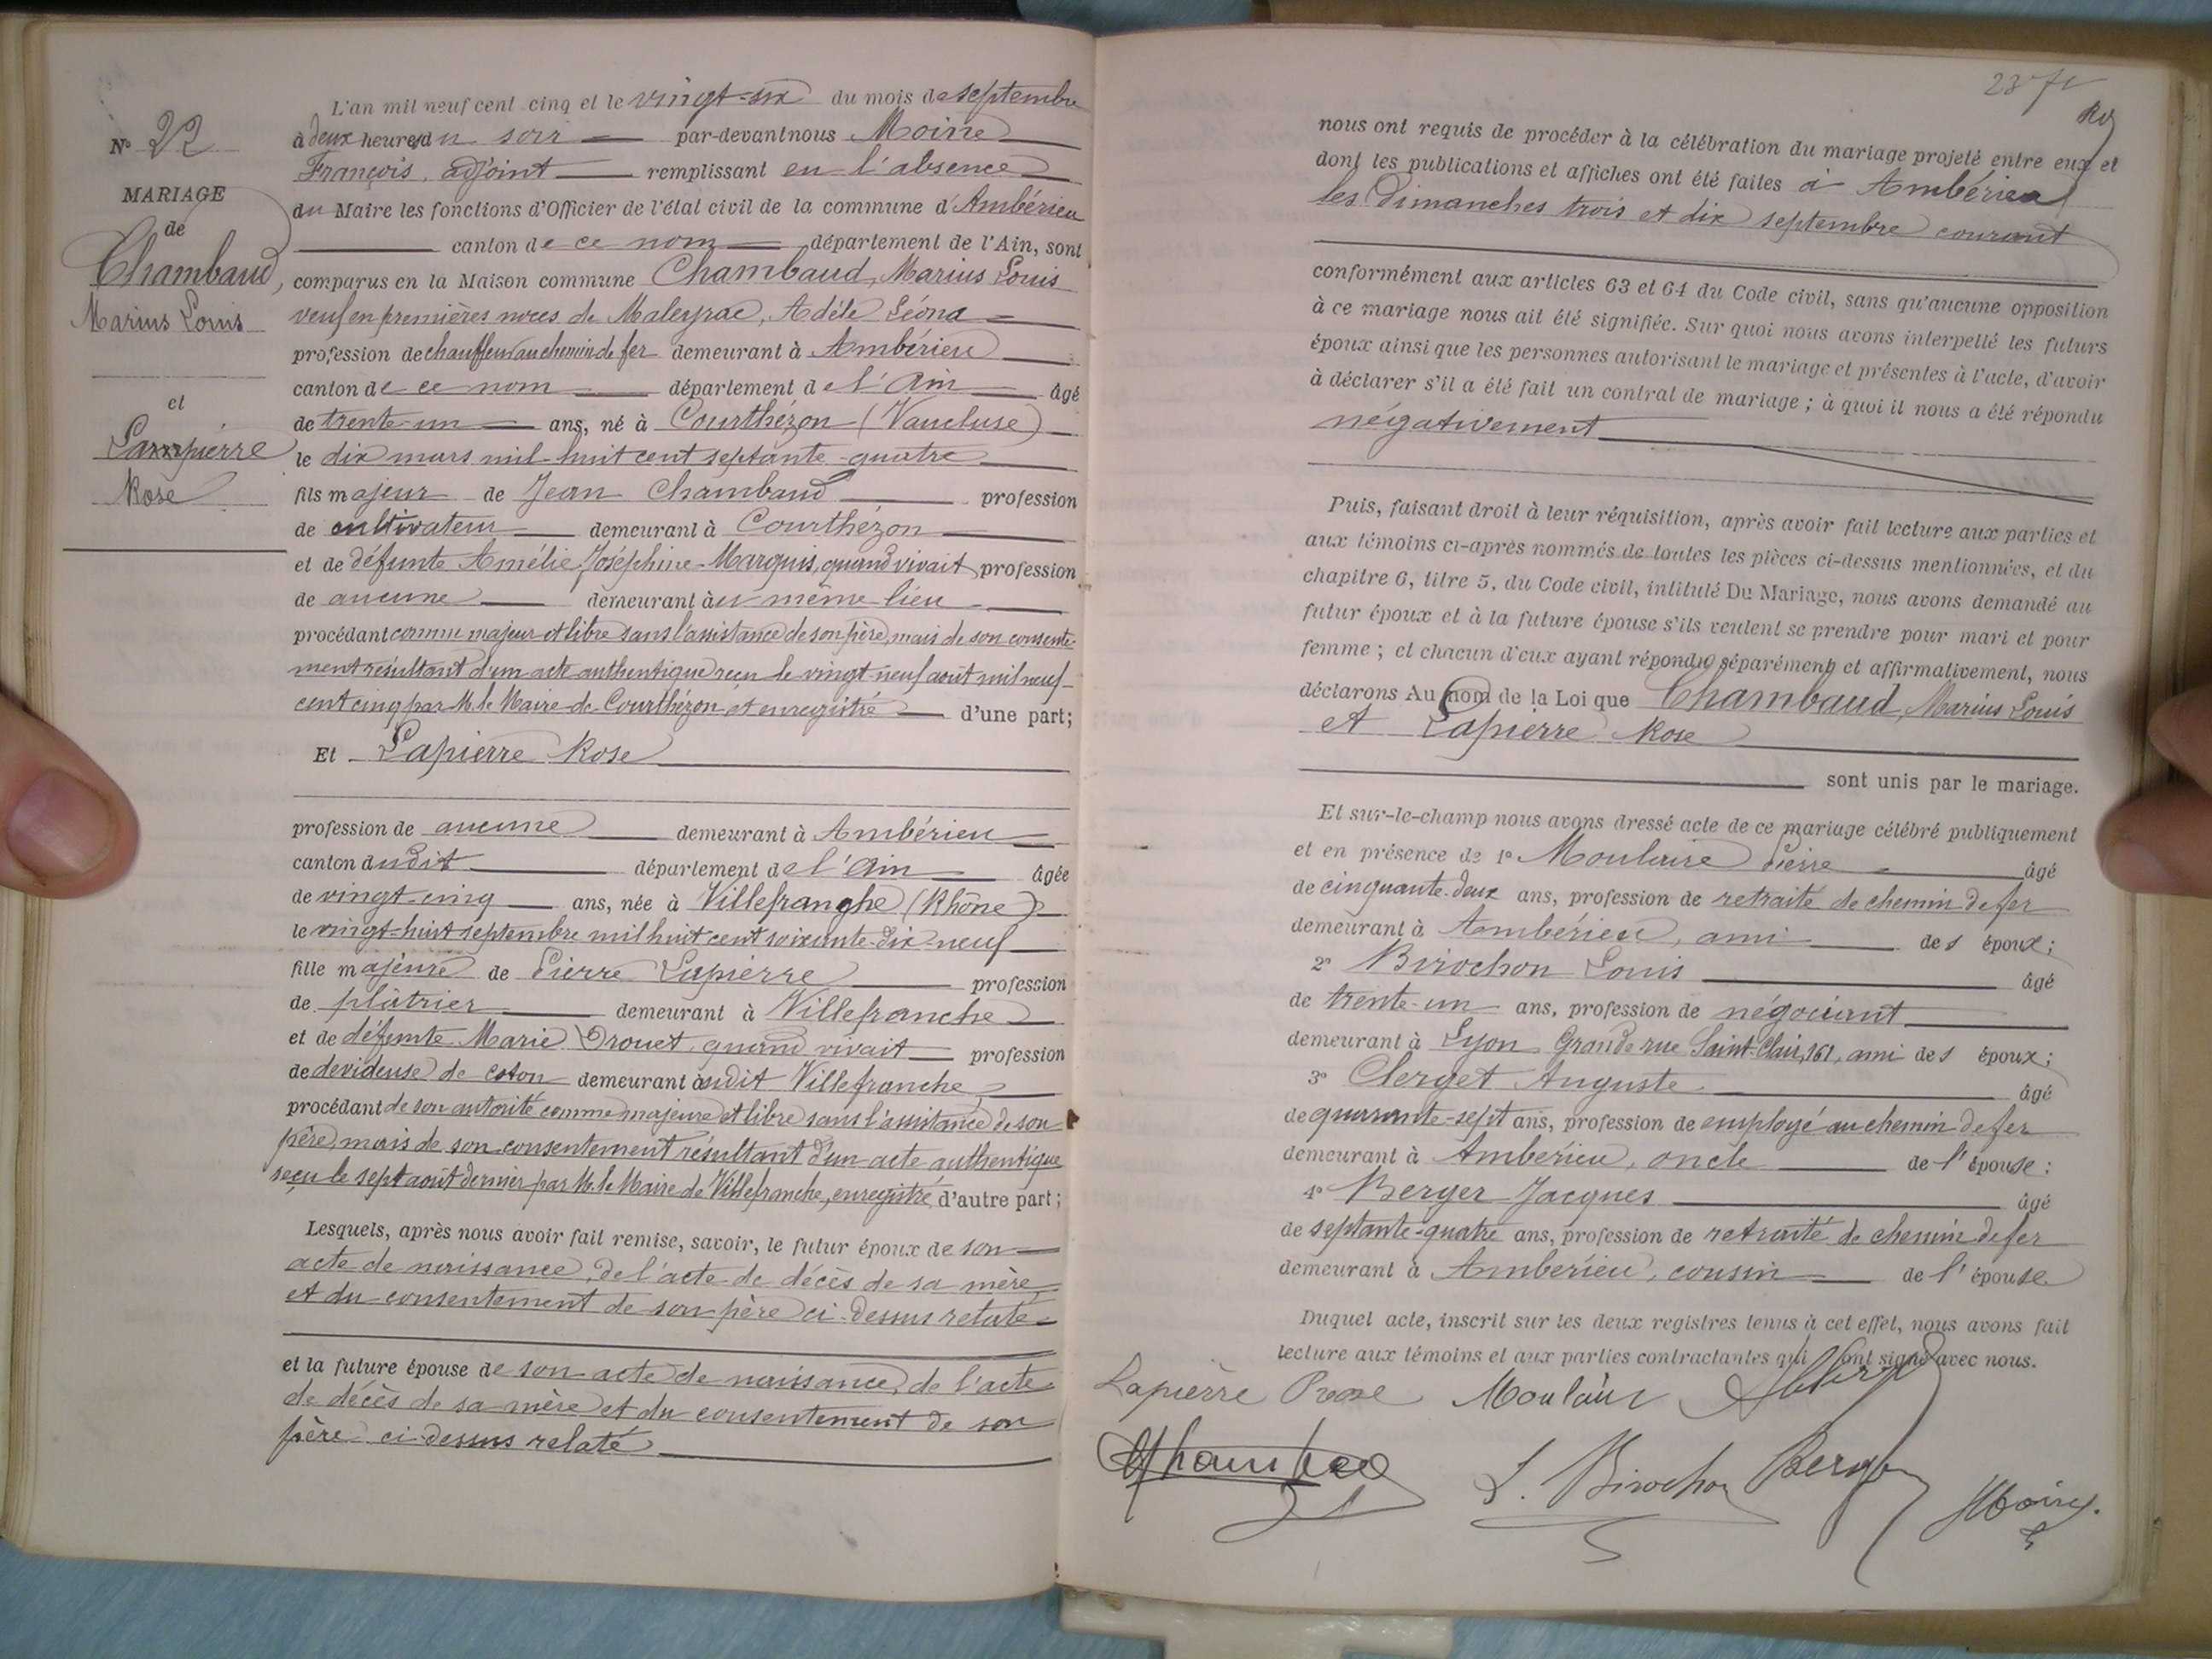 L'an mil neuf cent cinq et le vingt-six du mois de septembre
à deux heures du soir par-devant nous Moine
François, adjoint remplissant en l'absence
du Maire les fonctions d'Officier de l'état civil de la commune d'Ambérieu
canton de ce nom département de l'Ain, sont
comparus en la Maison commune Chambaud, Marius Louis
veuf en premières noces de Maleyrac, Adèle Léona
profession de chauffeur au chemin de fer demeurant à Ambérieu
canton de ce nom département de l'Ain âgé
de trente-un ans, né à Courthézon (Vaucluse)
le dix mars mil-huit cent septante-quatre
fils majeur de Jean Chambaud profession
de cultivateur demeurant à Courthézon
et de défunte Amélie Joséphine Marquis, quand vivait profession
de aucune demeurant au même lieu
procédant comme majeur et libre sans l'assistance de son père, mais de son consente-
ment résultant d'un acte authentique reçu le vingt-neuf août mil neuf-
cent cinq par M. le Maire de Courthézon et enregistré d'une part;
Et Lapierre Rose
profession de aucune demeurant à Ambérieu
canton dudit département de l'Ain âgée
de vingt-cinq ans, née à Villefranche (Rhône)
le vingt-huit septembre mil huit cent soixante-dix-neuf
fille majeure de Pierre Lapierre profession
de plâtrier demeurant à Villefranche
et de défunte Marie Drouet quand vivait profession
de devideuse de coton demeurant audit Villefranche
procédant de son autorité comme majeure et libre sans l'assistance de son
père, mais de son consentement résultant d'un acte authentique
reçu le sept août dernier par M. le Maire de Villefranche, enregistré, d'autre part;
Lesquels, après nous avoir fait remise, savoir, le futur époux de son
acte de naissance, de l'acte de décès de sa mère,
et du consentement de son père ci-dessus relaté
et la future épouse de son acte de naissance, de l'acte
de décès de sa mère et du consentement de son
père ci-dessus relaté
N° 22
MARIAGE
de
Chambaud,
Marius Louis
et
Lapierre
Rose
23
nous ont requis de procéder à la célébration du mariage projeté entre eux et
dont les publications et affiches ont été faites à Ambérieu
les Dimanches trois et dix septembre courant
conformément aux articles 63 et 64 du Code civil, sans qu'aucune opposition
à ce mariage nous ait été signifiée. Sur quoi nous avons interpellé les futurs
époux ainsi que les personnes autorisant le mariage et présentes à l'acte, d'avoir
à déclarer s'il a été fait un contrat de mariage; à quoi il nous a été répondu
négativement
Puis, faisant droit à leur réquisition, après avoir fait lecture aux parties et
aux témoins ci-après nommés de toutes les pièces ci-dessus mentionnées, et du
chapitre 6, titre 5, du Code civil, intitulé Du Mariage, nous avons demandé au
futur époux et à la future épouse s'ils veulent se prendre pour mari et pour
femme; et chacun d'eux ayant répondu séparément et affirmativement, nous
déclarons Au nom de la Loi que Chambaud, Marius Louis
et Lapierre Rose
sont unis par le mariage.
Et sur-le-champ nous avons dressé acte de ce mariage célébré publiquement
et en présence de 1° Moulaire Pierre âgé
de cinquante-deux ans, profession de retraité de chemin de fer
demeurant à Ambérieu, ami des époux;
2° Birochon Louis âgé
de trente-un ans, profession de négociant
demeurant à Lyon Grande rue Saint-Clair, 161, ami des époux;
3° Clerget Auguste âgé
de quarante-sept ans, profession de employé au chemin de fer
demeurant à Ambérieu, oncle de l'épouse;
4° Berger Jacques âgé
de septante-quatre ans, profession de retraité de chemin de fer
demeurant à Ambérieu, cousin de l'épouse
Duquel acte, inscrit sur les deux registres tenus à cet effet, nous avons fait
lecture aux témoins et aux parties contractantes qui ont signé avec nous.
Lapierre Rose Moulair
L. Birochon Berger Moine